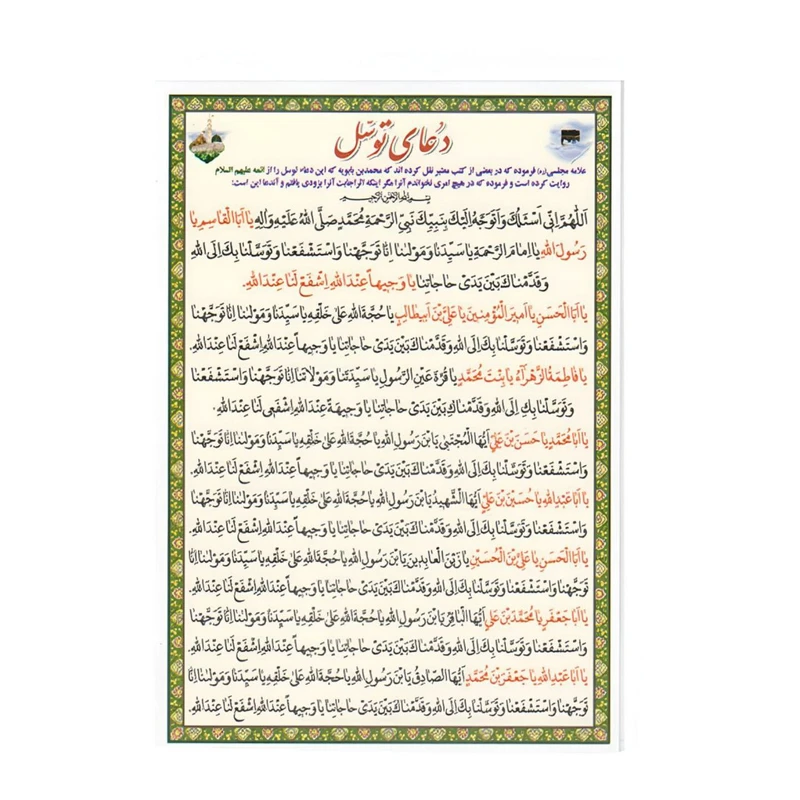 دعای توسل
علامه مجلسی(ره) فرموده که در بعضی از کتب معتبر نقل کرده اند که محمدبن بابویه که این دعاء توسل را از ائمه علیهم السلام
روایت کرده است و فرموده که در هیچ امری نخواندم آنرا مگر اینکه اثر اجابت آنرا بزودی یافتم و آندعا این است:
بِسْمِ اللهِ الرَّحْمٰنِ الرَّحِیمِ
اَللّٰهُمَّ اِنّی اَسْئَلُكَ وَاَتَوَجَّهُ اِلَیْكَ بِنَبِیِّكَ نَبِیِّ الرَّحْمَةِ مُحَمَّدٍ صَلَّی اللهُ عَلَیْهِ وَالِهِ یا اَبَا الْقاسِمِ یا
رَسُولَ اللهِ یا اِمامَ الرَّحْمَةِ یا سَیِّدَنا وَمَوْلٰینا اِنّا تَوَجَّهْنا وَاسْتَشْفَعْنا وَتَوَسَّلْنا بِكَ اِلَی اللهِ
وَقَدَّمْناكَ بَیْنَ یَدَیْ حاجاتِنا یا وَجیهاً عِنْدَ اللهِ اِشْفَعْ لَنا عِنْدَ اللهِ
یا اَبَا الْحَسَنِ یا اَمیرَ الْمُؤْمِنینَ یا عَلِیَّ بْنَ اَبیطالِبٍ یا حُجَّةَ اللهِ عَلیٰ خَلْقِهِ یا سَیِّدَنا وَمَوْلٰینا اِنّا تَوَجَّهْنا
وَاسْتَشْفَعْنا وَتَوَسَّلْنا بِكَ اِلَی اللهِ وَقَدَّمْناكَ بَیْنَ یَدَیْ حاجاتِنا یا وَجیهاً عِنْدَ اللهِ اِشْفَعْ لَنا عِنْدَ اللهِ.
یا فاطِمَةُ الزَّهْراءُ یا بِنْتَ مُحَمَّدٍ یا قُرَّةَ عَیْنِ الرَّسُولِ یا سَیِّدَتَنا وَمَوْلاتَنا اِنّا تَوَجَّهْنا وَاسْتَشْفَعْنا
وَتَوَسَّلْنا بِكِ اِلَی اللهِ وَقَدَّمْناكِ بَیْنَ یَدَیْ حاجاتِنا یا وَجیهَةً عِنْدَ اللهِ اِشْفَعی لَنا عِنْدَ اللهِ.
یا اَبا مُحَمَّدٍ یا حَسَنَ بْنَ عَلِیٍّ اَیُّهَا الْمُجْتَبیٰ یَابْنَ رَسُولِ اللهِ یا حُجَّةَ اللهِ عَلیٰ خَلْقِهِ یا سَیِّدَنا وَمَوْلٰینا اِنّا تَوَجَّهْنا
وَاسْتَشْفَعْنا وَتَوَسَّلْنا بِكَ اِلَی اللهِ وَقَدَّمْناكَ بَیْنَ یَدَیْ حاجاتِنا یا وَجیهاً عِنْدَ اللهِ اِشْفَعْ لَنا عِنْدَ اللهِ.
یا اَبا عَبْدِ اللهِ یا حُسَیْنَ بْنَ عَلِیٍّ اَیُّهَا الشَّهیدُ یَابْنَ رَسُولِ اللهِ یا حُجَّةَ اللهِ عَلیٰ خَلْقِهِ یا سَیِّدَنا وَمَوْلٰینا اِنّا تَوَجَّهْنا
وَاسْتَشْفَعْنا وَتَوَسَّلْنا بِكَ اِلَی اللهِ وَقَدَّمْناكَ بَیْنَ یَدَیْ حاجاتِنا یا وَجیهاً عِنْدَ اللهِ اِشْفَعْ لَنا عِنْدَ اللهِ.
یا اَبَا الْحَسَنِ یا عَلِیَّ بْنَ الْحُسَیْنِ یا زَیْنَ الْعابِدینَ یَابْنَ رَسُولِ اللهِ یا حُجَّةَ اللهِ عَلیٰ خَلْقِهِ یا سَیِّدَنا وَمَوْلٰینا اِنّا
تَوَجَّهْنا وَاسْتَشْفَعْنا وَتَوَسَّلْنا بِكَ اِلَی اللهِ وَقَدَّمْناكَ بَیْنَ یَدَیْ حاجاتِنا یا وَجیهاً عِنْدَ اللهِ اِشْفَعْ لَنا عِنْدَ اللهِ.
یا اَبا جَعْفَرٍ یا مُحَمَّدَ بْنَ عَلِیٍّ اَیُّهَا الْباقِرُ یَابْنَ رَسُولِ اللهِ یا حُجَّةَ اللهِ عَلیٰ خَلْقِهِ یا سَیِّدَنا وَمَوْلٰینا اِنّا تَوَجَّهْنا
وَاسْتَشْفَعْنا وَتَوَسَّلْنا بِكَ اِلَی اللهِ وَقَدَّمْناكَ بَیْنَ یَدَیْ حاجاتِنا یا وَجیهاً عِنْدَ اللهِ اِشْفَعْ لَنا عِنْدَ اللهِ.
یا اَبا عَبْدِ اللهِ یا جَعْفَرَ بْنَ مُحَمَّدٍ اَیُّهَا الصّادِقُ یَابْنَ رَسُولِ اللهِ یا حُجَّةَ اللهِ عَلیٰ خَلْقِهِ یا سَیِّدَنا وَمَوْلٰینا اِنّا
تَوَجَّهْنا وَاسْتَشْفَعْنا وَتَوَسَّلْنا بِكَ اِلَی اللهِ وَقَدَّمْناكَ بَیْنَ یَدَیْ حاجاتِنا یا وَجیهاً عِنْدَ اللهِ اِشْفَعْ لَنا عِنْدَ اللهِ.